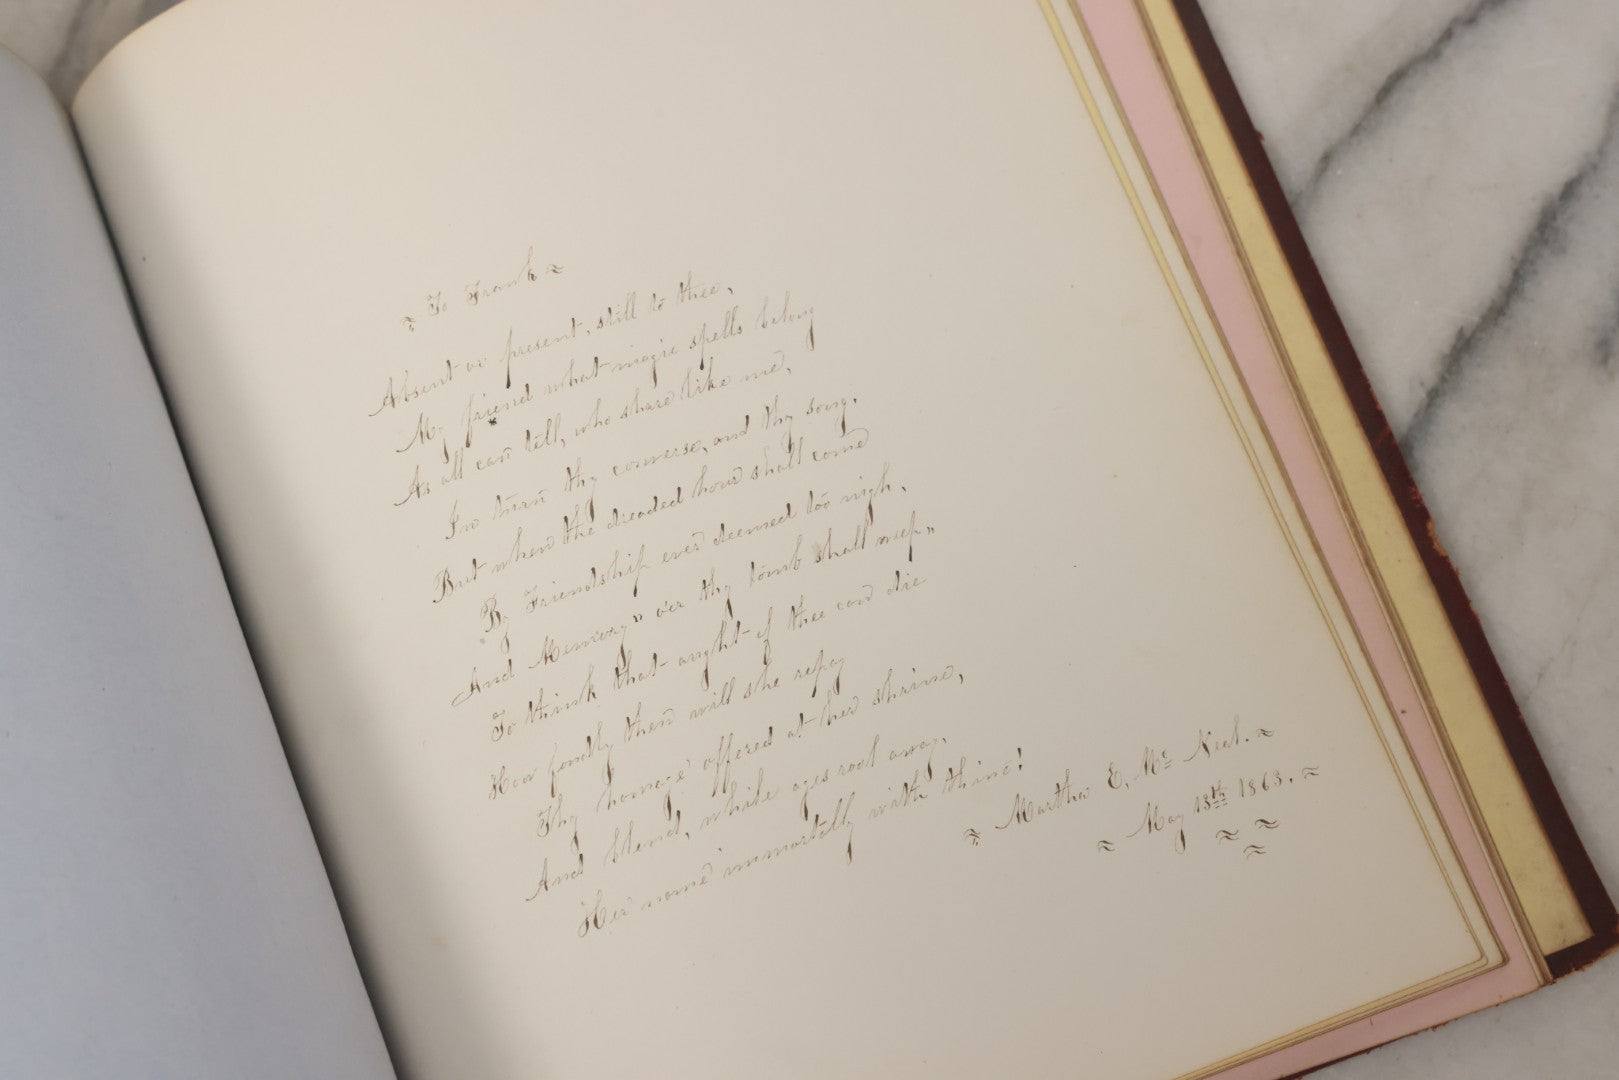 To Frank
Absent or present, still to thee,
My friend what magic spells belong
As all can tell, who share like me,
In turn thy converse, and thy song.
But when the dreaded hour shall come
By Friendship ever deemed too nigh,
And "Memory" o'er thy tomb shall weep"
To think that aught of thee can die
How fondly then will she repay
Thy homage offered at her shrine,
And blend, while ages roll away,
Her name immortally with thine!
Martha E. Mc Neal.
May 13th 1863.